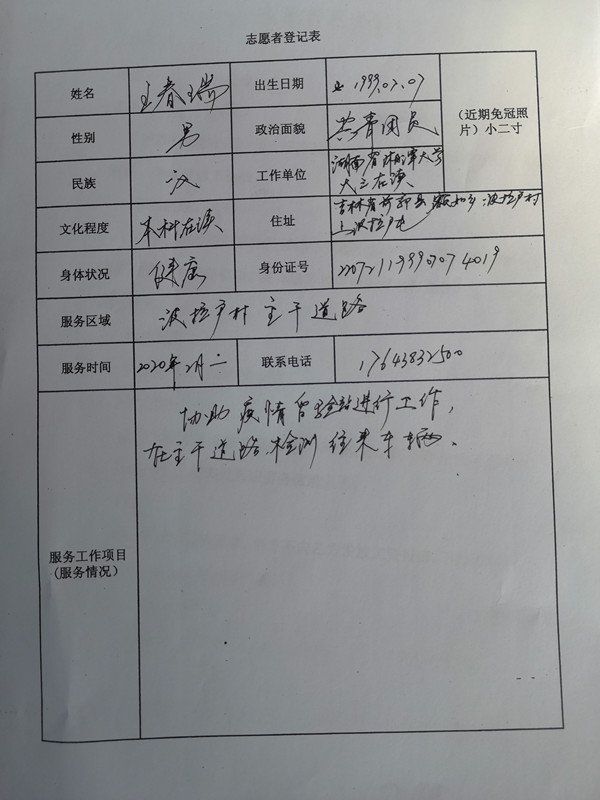 志愿者登记表
姓名 王春瑞 出生日期 1999.07.07
(近期免冠照片)小二寸
性别 男 政治面貌 共青团员
民族 汉 工作单位 河南省 大学
大三在读
文化程度 本科在读 住址 吉林省 县 乡 波拉户村
上波拉户屯
身体状况 健康 身份证号 220721199907074019
服务区域 波拉户村主干道路
服务时间 2020年2月 联系电话 17643832500
服务工作项目
(服务情况)
协助疫情 验站进行工作,
在主干道路检测往来车辆。